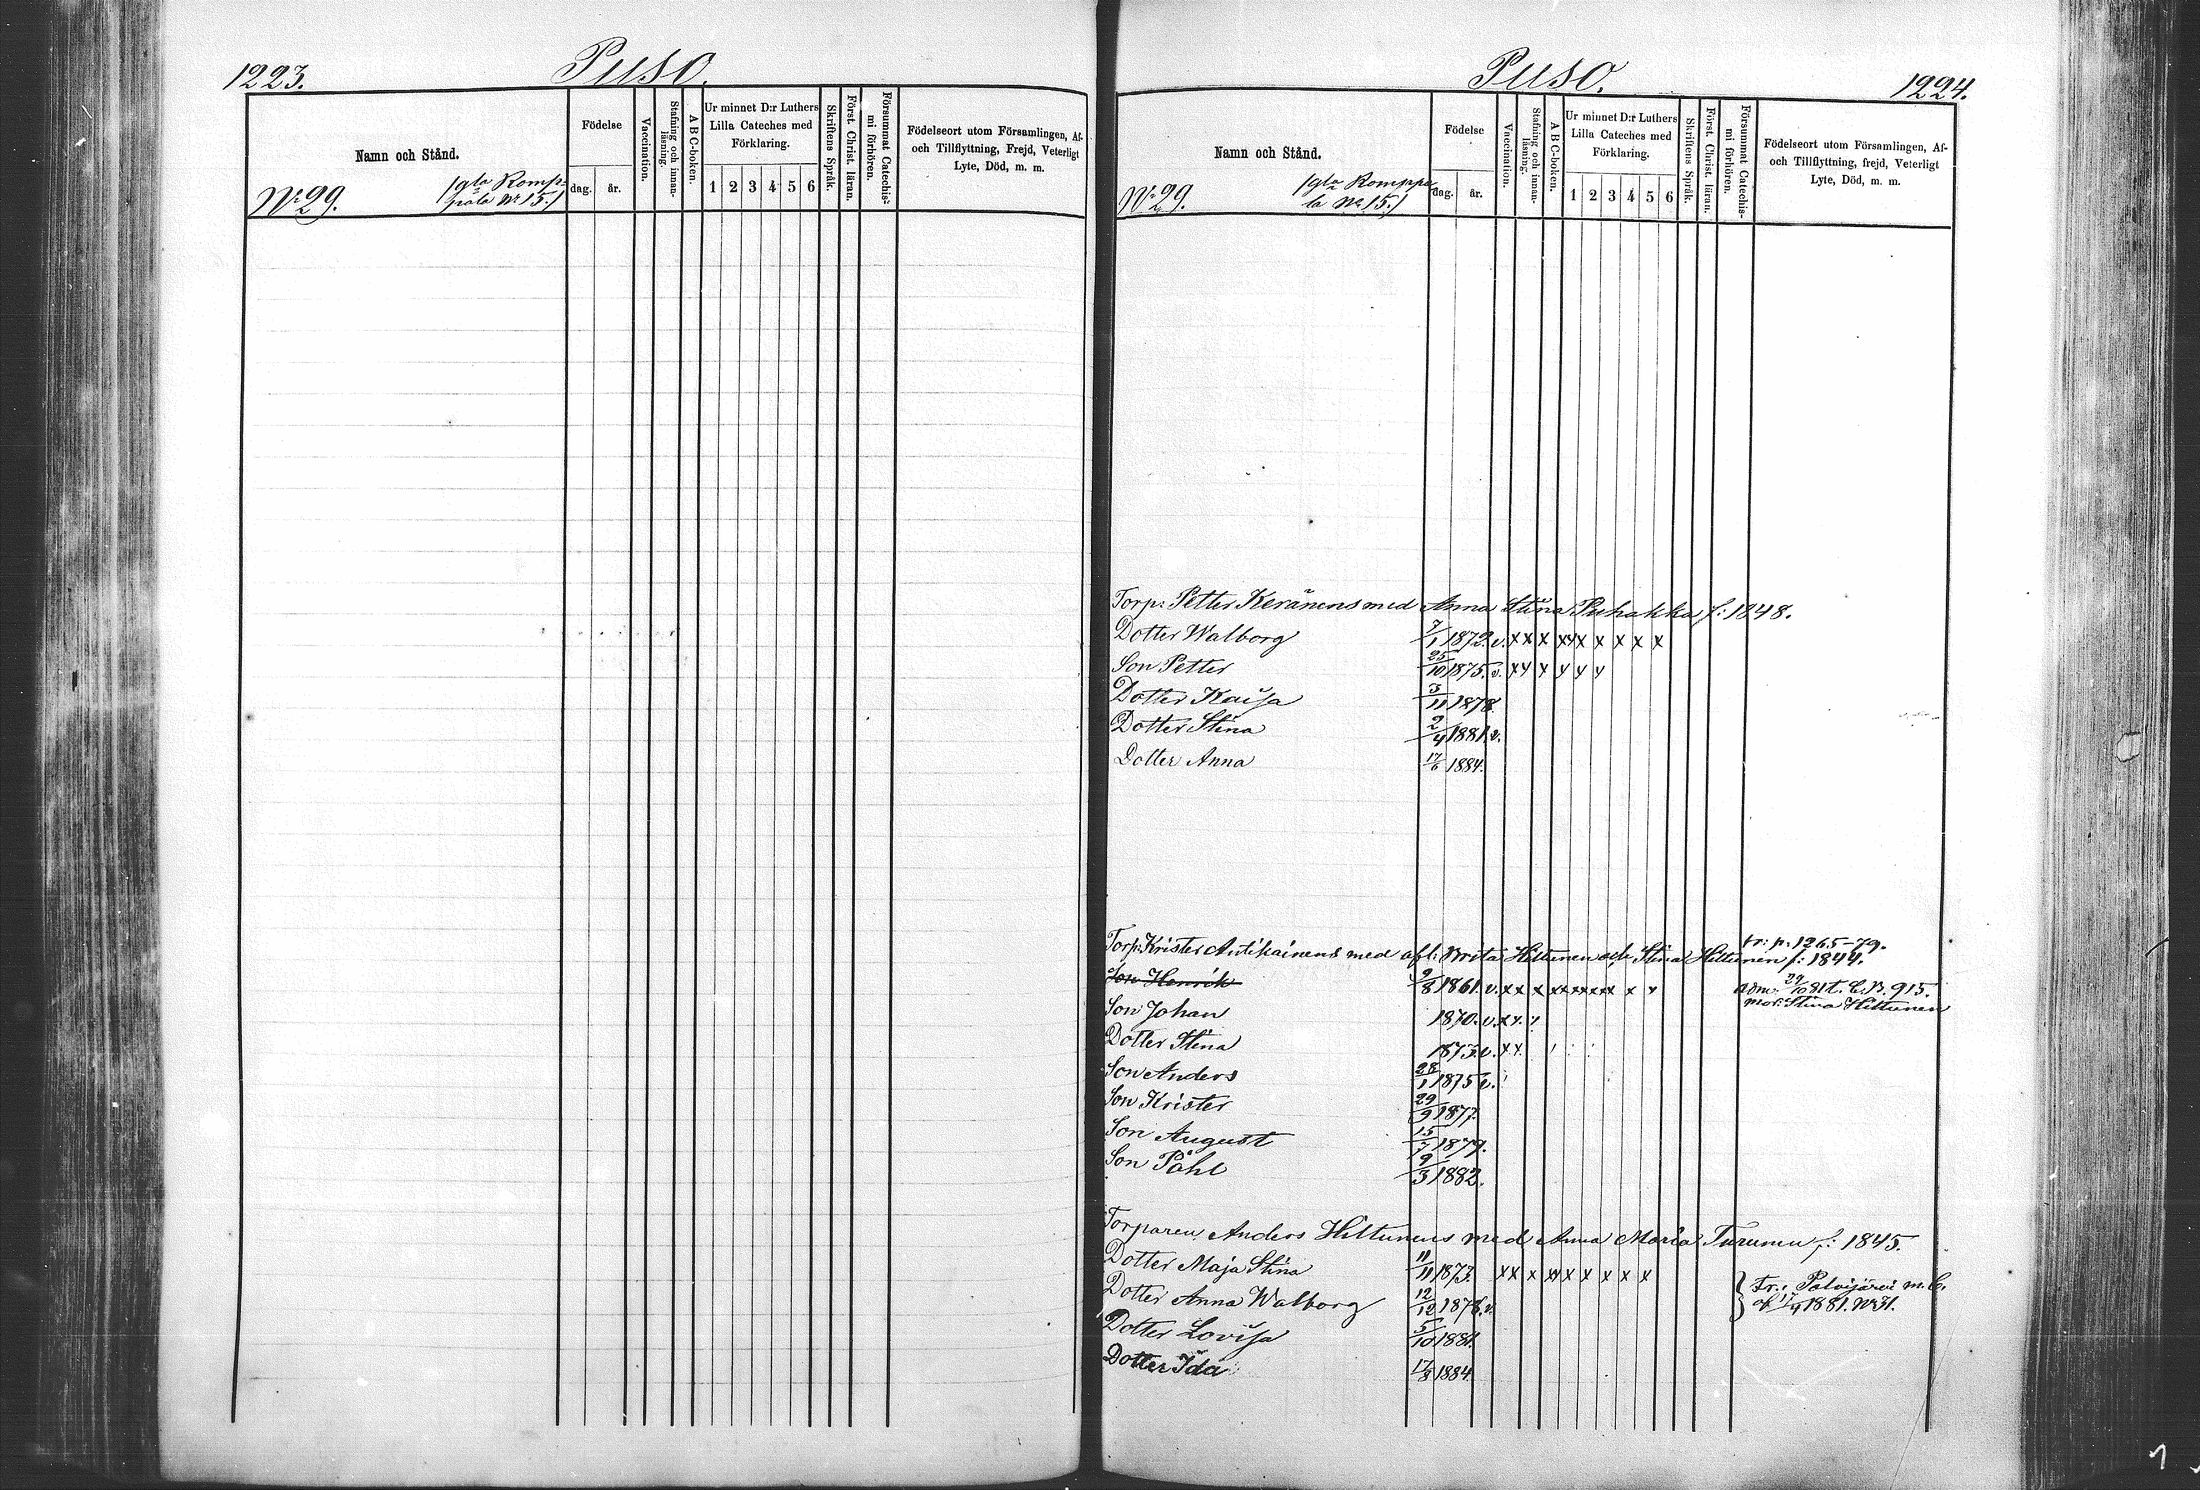 1223.
Puso.
Namn och Stånd.
Födelse
dag. år.
Vaccination.
Stafning och innan-läsning.
A B C-boken.
Ur minnet D:r Luthers
Lilla Cateches med
Förklaring.
1 2 3 4 5 6
Skriftens Språk.
Först. Christ. läran.
Försummat Catechis-mi förhören.
Födelseort utom Församlingen, Af-
och Tillflyttning, Frejd, Veterligt
Lyte, Död, m. m.
No 29.
(gla Romp-
pala No 15.)
Puso.
1224.
Namn och Stånd.
Födelse
dag. år.
Vaccination.
Stafning och innan-läsning.
A B C-boken.
Ur minnet D:r Luthers
Lilla Cateches med
Förklaring.
1 2 3 4 5 6
Skriftens Språk.
Först. Christ. läran.
Försummat Catechis-mi förhören.
Födelseort utom Församlingen, Af-
och Tillflyttning, frejd, Veterligt
Lyte, Död, m. m.
No 29.
(gla Romppa
la No 15.)
Torp: Petter Keränens med Anna Stina Puhakka f: 1848.
Dotter Walborg 7/1 1872. v. x x x x x x x x x x
Son Petter 25/10 1875. v. x x x x x x
Dotter Kaisa 3/11 1878.
Dotter Stina 2/4 1881. v.
Dotter Anna 17/6 1884.
fr: p: 1265-79.
Torp: Krister Antikainens med afl: Brita Hiltunen och Stina Hiltunen f: 1844.
Son Henrik 9/8 1861. v. x x x x x x x x x x 29/10 81 t. C. B. 915.
mor: Stina Hiltunen
Son Johan 1870. v. x x.
Dotter Stina 1873. v. x x
Son Anders 28/1 1875 v.
Son Krister 29/9 1877.
Son August 15/7 1879.
Son Påhl 9/3 1882.
Torparen Anders Hiltunens med Anna Maria Turunen f: 1845.
Dotter Maja Stina 11/11 1873. x x x x x x x x x x
Dotter Anna Walborg 12/12 1878. v. Fr: Polvijärvi m. b.
af 17/4 1881. No 31.
Dotter Lovisa 5/10 1881.
Dotter Ida 17/8 1884.